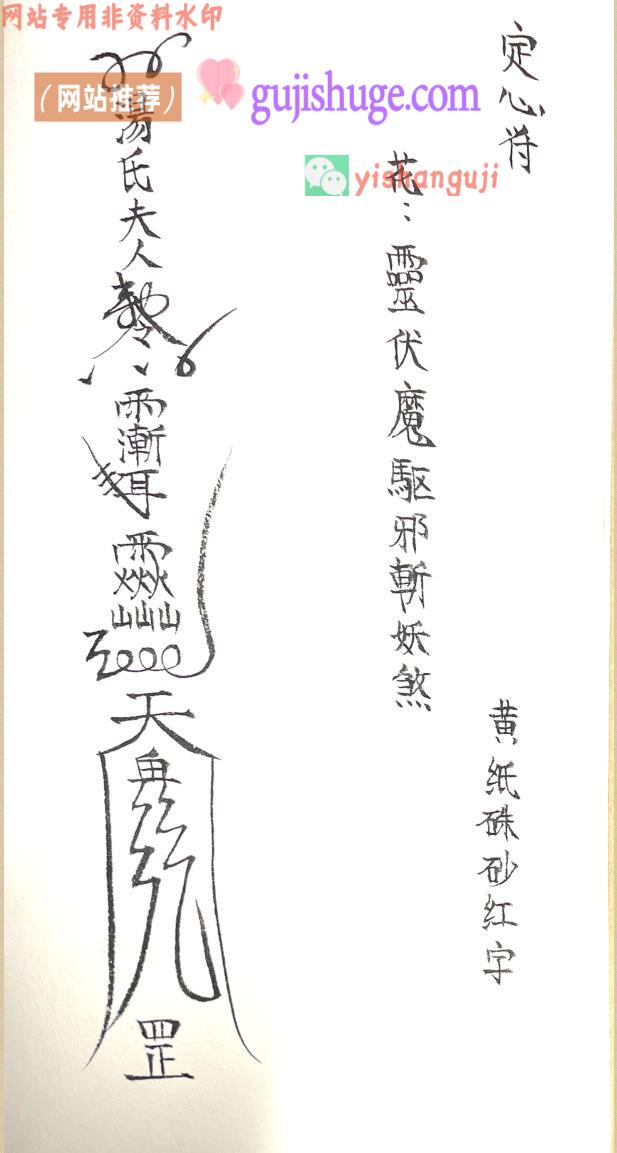 网站专用非资料水印
（网站推荐）
gujishuge.com
yishanguji
定心符
花：靈伏魔驅邪斬妖煞
黄纸硃砂红字
湯氏夫人
天
罡